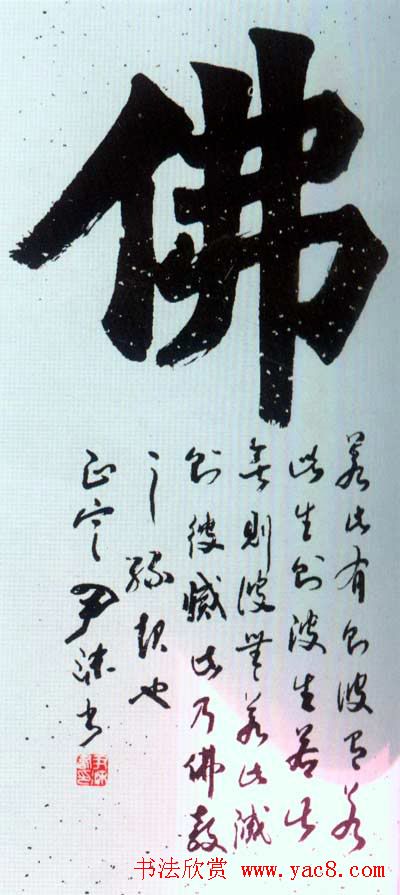 佛
若此有则彼有若
此生则彼生若此
無則彼無若此滅
则彼滅此乃佛教
之缘起也
正宁尹 书
书法欣赏 www.yac8.com